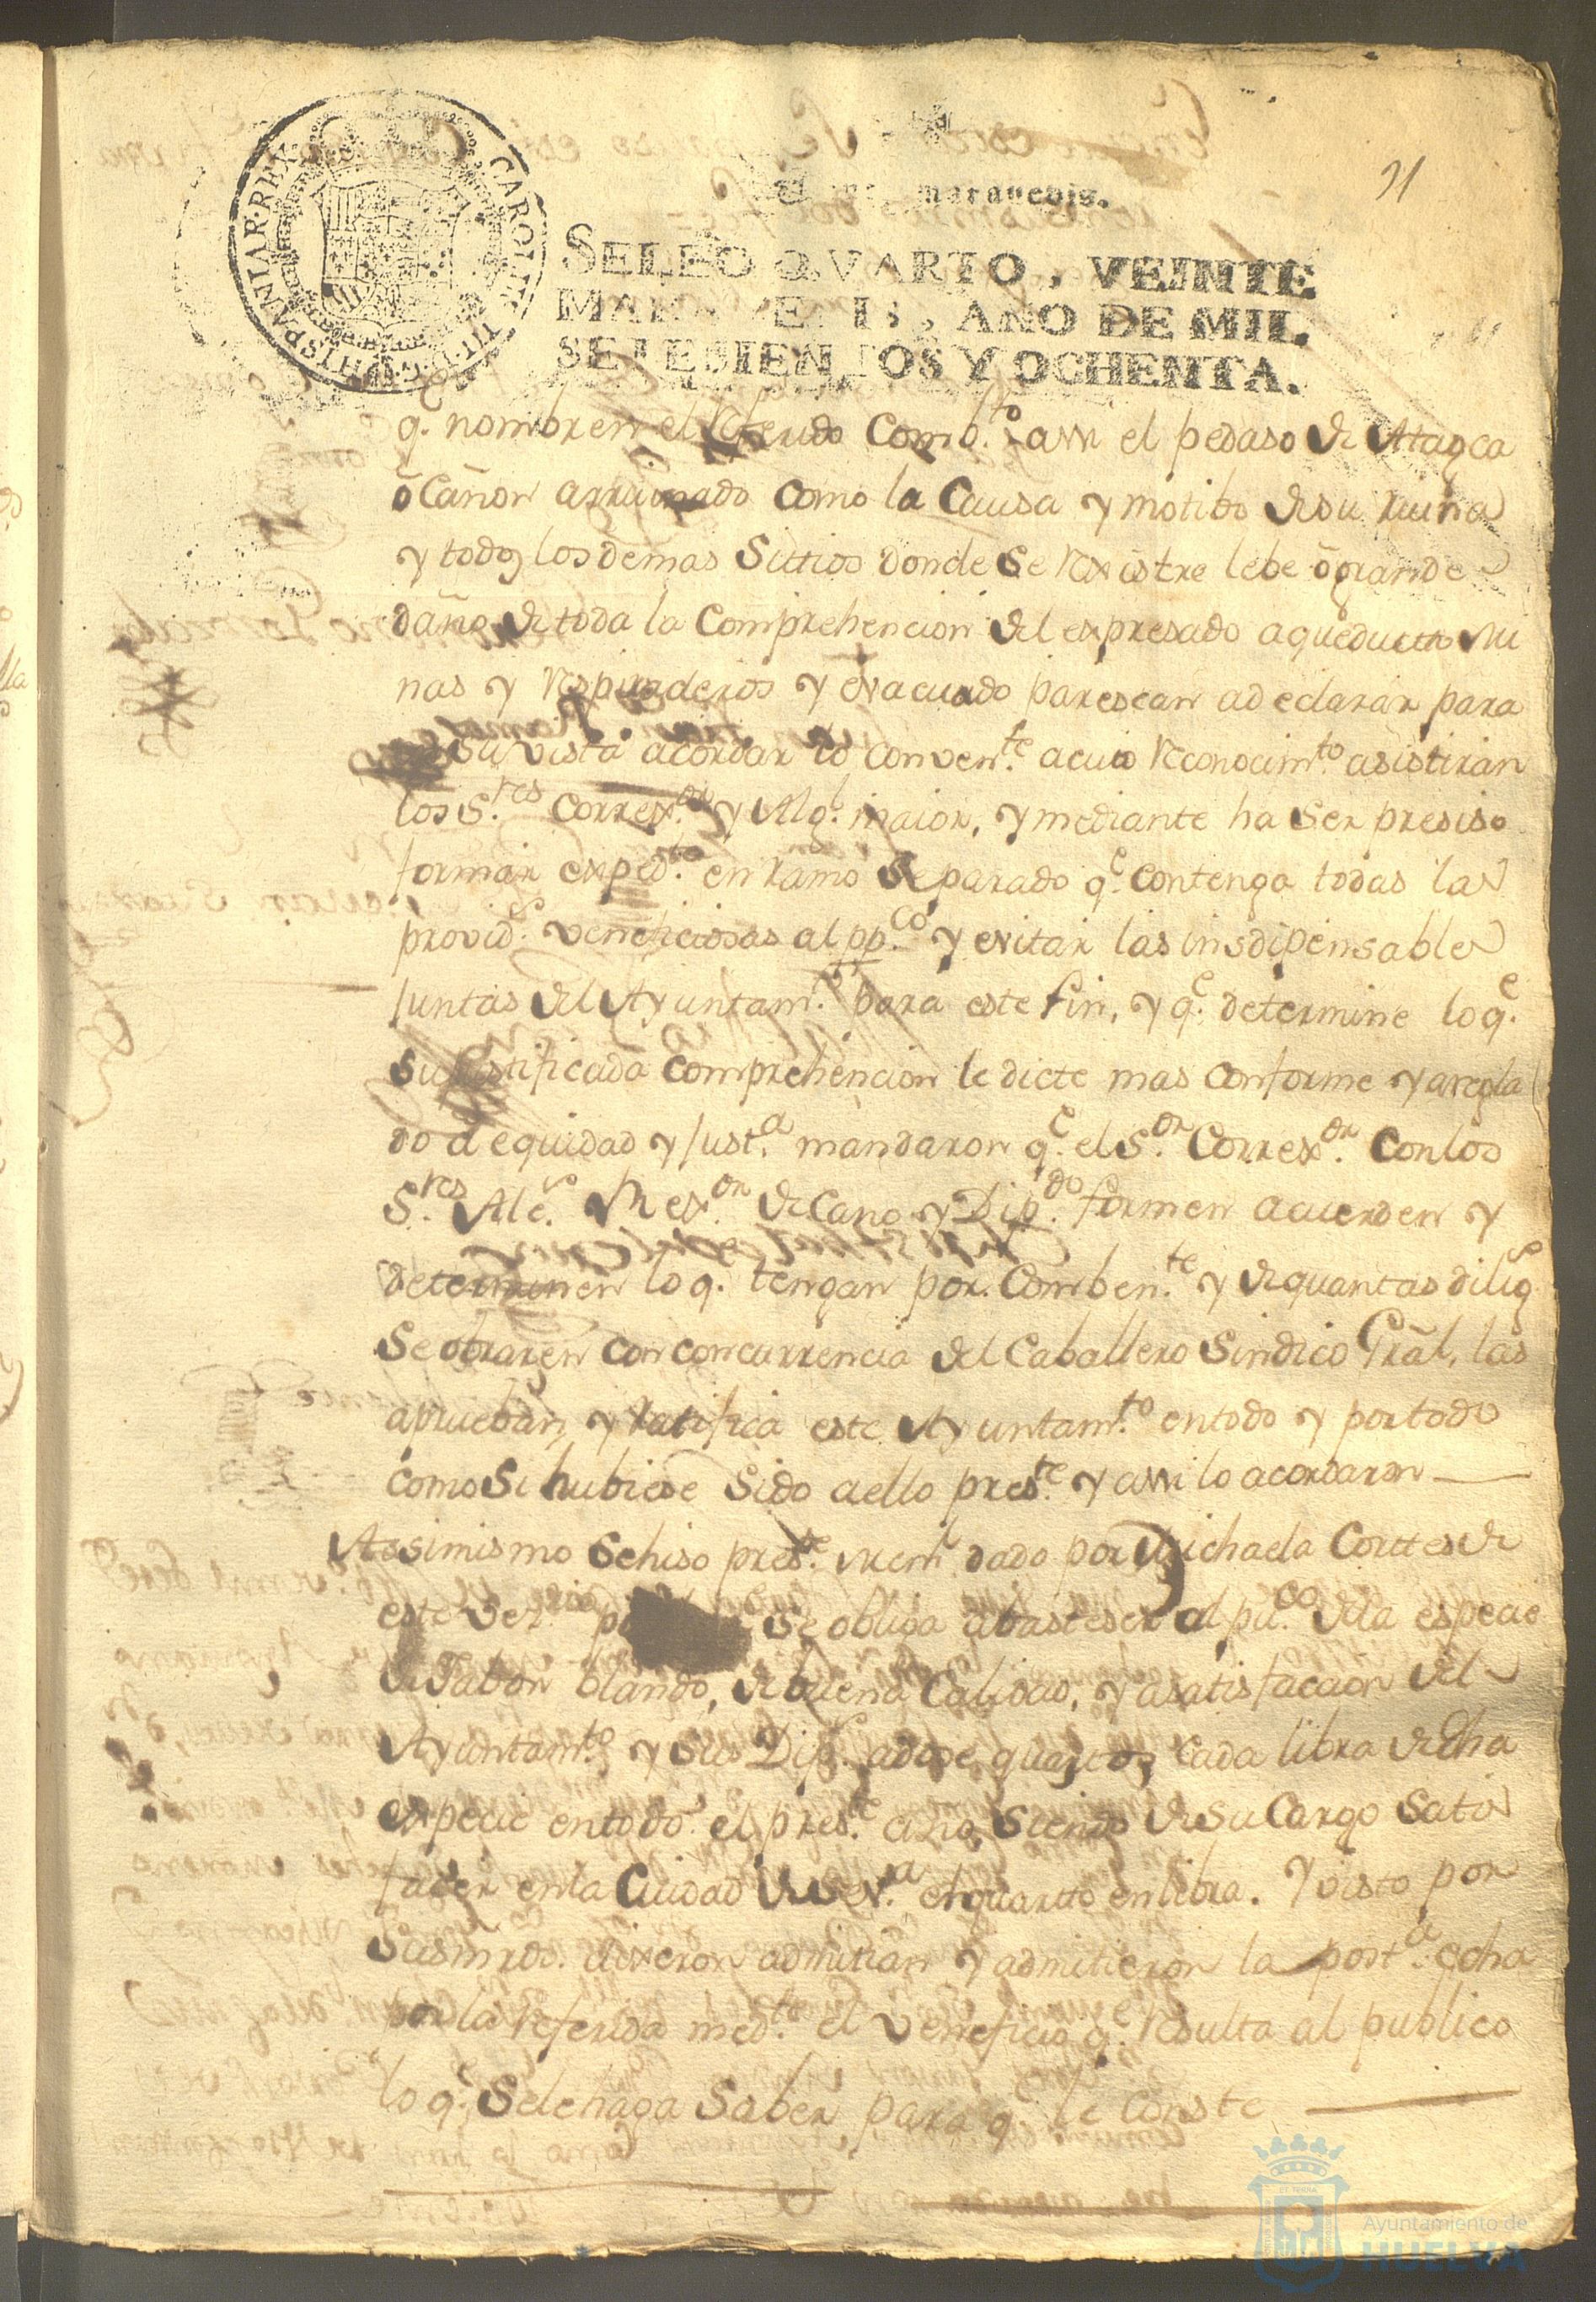 21
maravedis.
CAROLUS III D.G. HISPANIAR. REX
SELLO QVARTO, VEINTE
MARAVEDIS, AÑO DE MIL
SETECIENTOS Y OCHENTA.
q.e nombren el Referido Comb.to asi el pedaso de Atagea
ò Cañon arruinado como la Causa y motibo de su ruina
y todos los demas Sittios donde se Rexistre lebe ò grande
daño de toda la Comprehencion del expresado aqueducto Mi
nas y Respiraderos y evacuado parescan a declarar para
su vista acordar lo conven.te a cuio Reconocim.to asistiran
los S.res Correx.or y Alg.l maior, y mediante ha ser presiso
formar exped.te en ramo separado q.e contenga todas las
provid.s veneficiosas al pp.co y evitar las insdipensables
Juntas del Ayuntam.to para este fin, y q.e determine lo q.e
su justificada comprehencion le dicte mas conforme y aregla
do a equidad y Just.a mandaron q.e el S.or Correx.or con los
S.res Alc.s Rex.or Decano y Dip.do formen acuerden y
determinen lo q.e tengan por comben.te y de quantas dilig.s
se obraren con concurrencia del Caballero Sindico Grãl, las
aprueban y ratifica este Ayuntam.to en todo y por todo
como si hubiese sido a ello pres.te y asi lo acordaron
Assimismo se hiso pres.te mem.l dado por Michaela Corttes de
este Vez.rio se obliga abasteser al pu.co de la especie
de Jabon blando, de buena calidad, y a satisfaccion del
Ayuntam.to y sus Dip.s a dose quartos cada libra de dha
expecie en todo el pres.te año, siendo de su Cargo satis
facer en la Ciudad de Sev.a el quartto en libra. Y visto por
Sus mrds. dixeron admitian y admitieron la post.a echa
por la referida med.te el veneficio q.e resulta al publico
lo q.e se le haga saber para q.e le conste
Ayuntamiento de
HUELVA